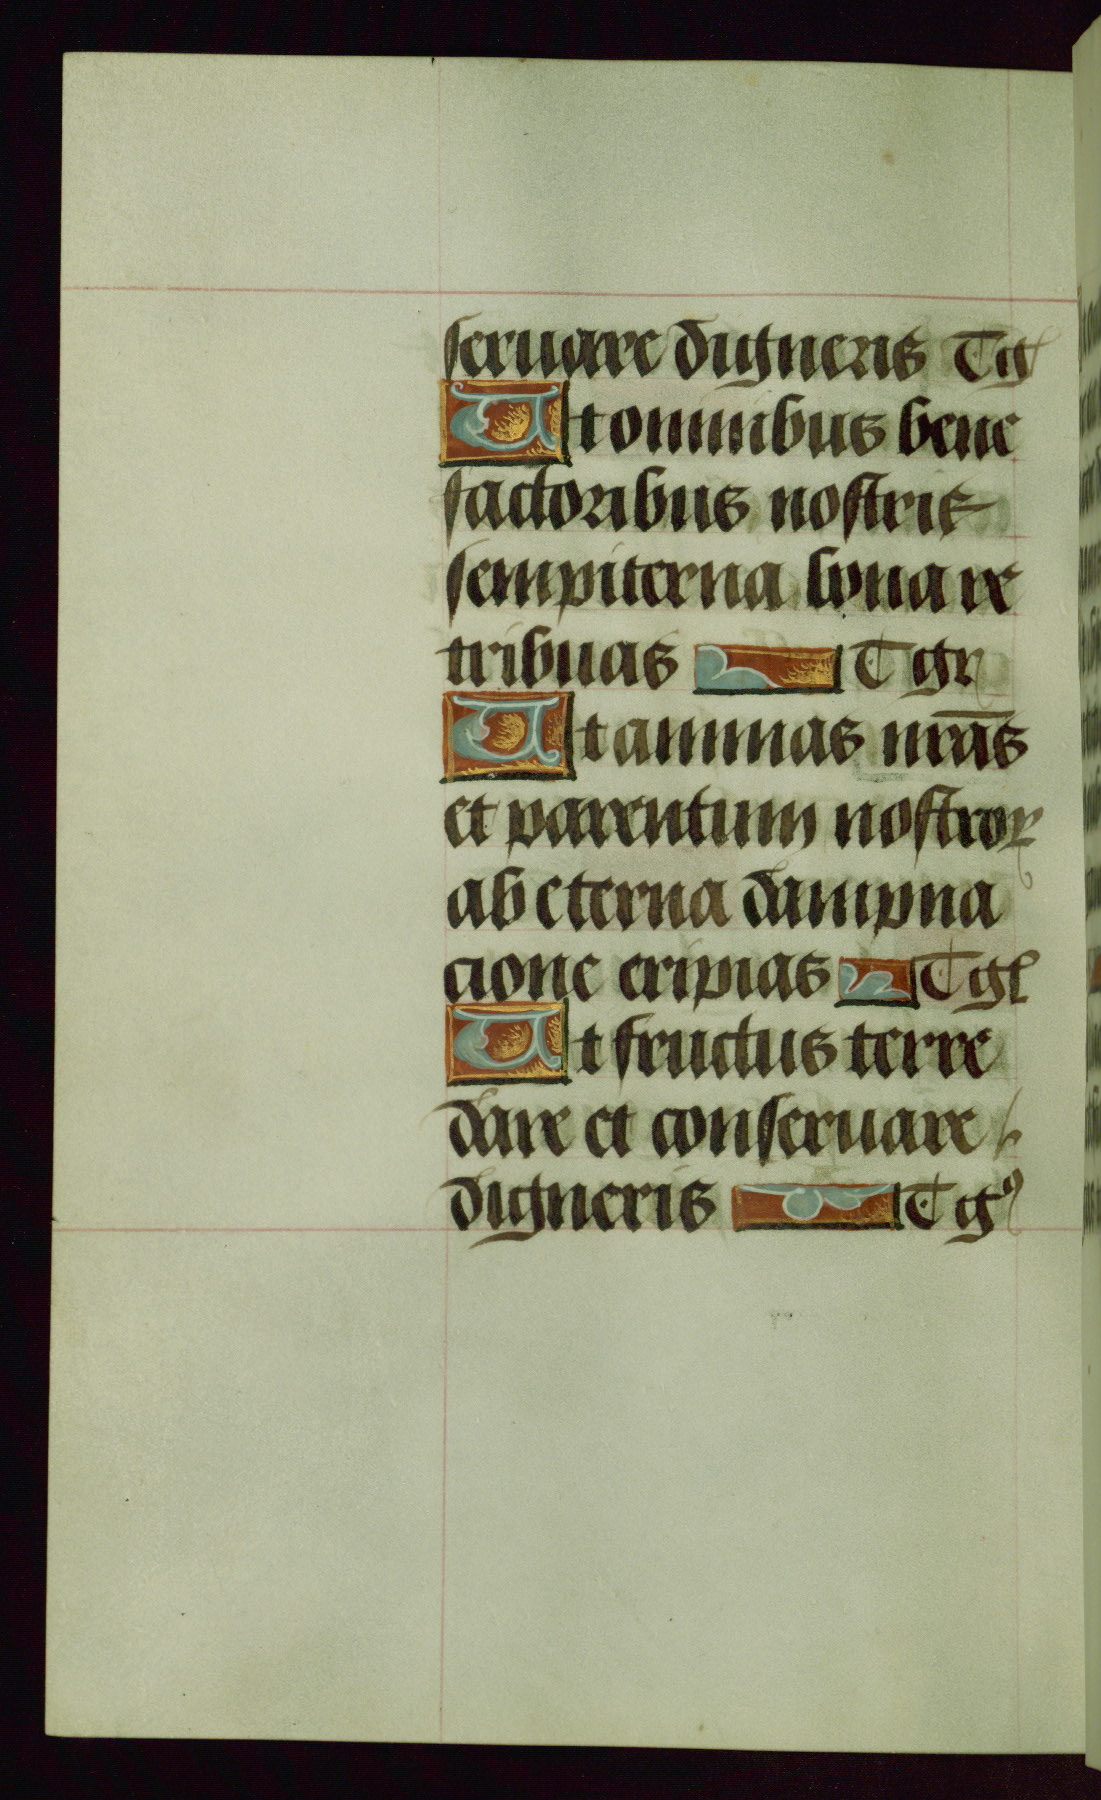 seruare digneris T g
Ut omnibus bene
factoribus nostris
sempiterna bona re
tribuas T g r
Ut animas nr̄as
et parentum nostroꝝ
ab eterna dampna
cione eripias T g l
Ut fructus terre
dare et conseruare
digneris T g